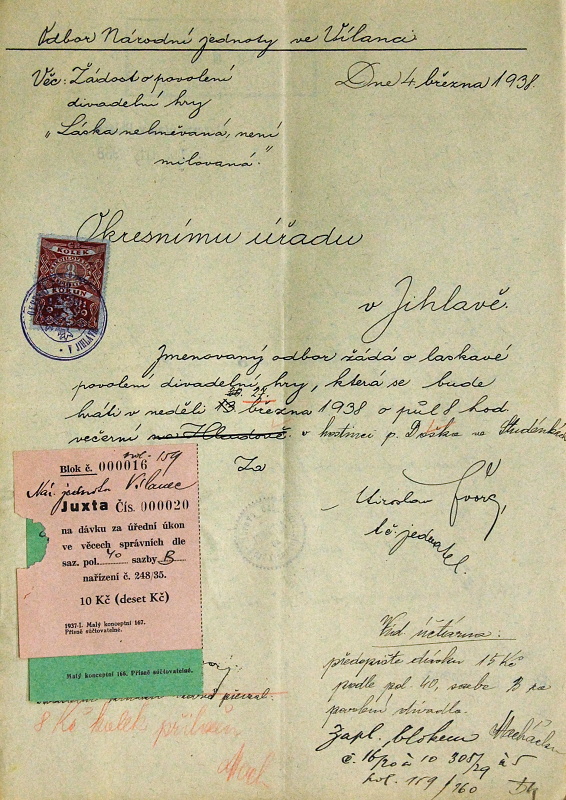 Odbor Národní jednoty ve Vílanci
Věc: Žádost o povolení
Dne 4. března 1938.
divadelní hry
"Láska nehněvaná, není
milovaná."
Okresnímu úřadu
v Jihlavě.
KOLEK
KORUN
V JIHLAVĚ
Jmenovaný odbor žádá o laskavé
povolení divadelní hry, která se bude
hráti v neděli 13 března 1938 o půl 8 hod
večerní v hostinci p. ve Studénkách
Za
Miroslav
t.č. jednatel.
Blok č. 000016
159
Nár. jednota Vílanec
Juxta Čís. 000020
na dávku za úřední úkon
ve věcech správních dle
saz. pol. 40 sazby B
nařízení č. 248/35.
10 Kč (deset Kč)
1937-I. Malý konceptní 167.
Přísně súčtovatelné.
Malý konceptní 166. Přísně súčtovatelné.
8 Kč kolek
účtárna:
předepište dávku 15 Kč
podle pol 40, sazba B za
povolení divadla.
Zapl. blokem
č. 16/20 à 10 305/29 à 5
159/160